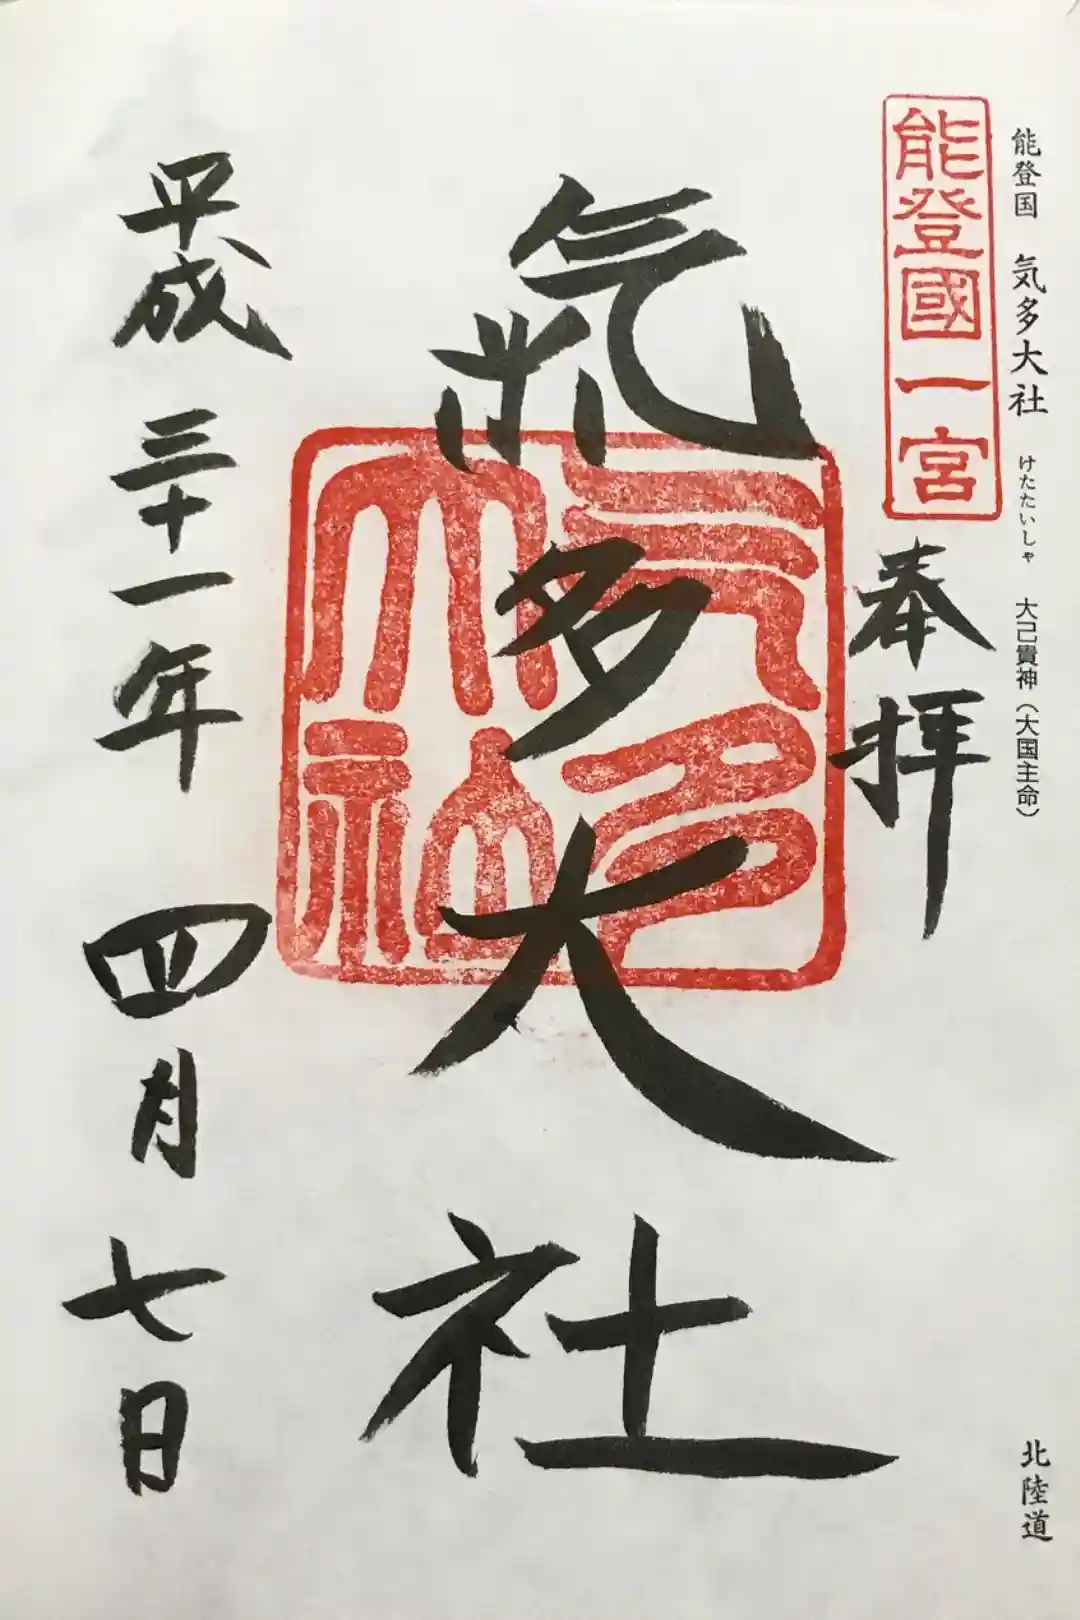 能登国 気多大社 けたたいしゃ 大己貴神（大国主命） 北陸道
能登國一宮
奉拝
氣多大社
氣多大社
平成三十一年四月七日